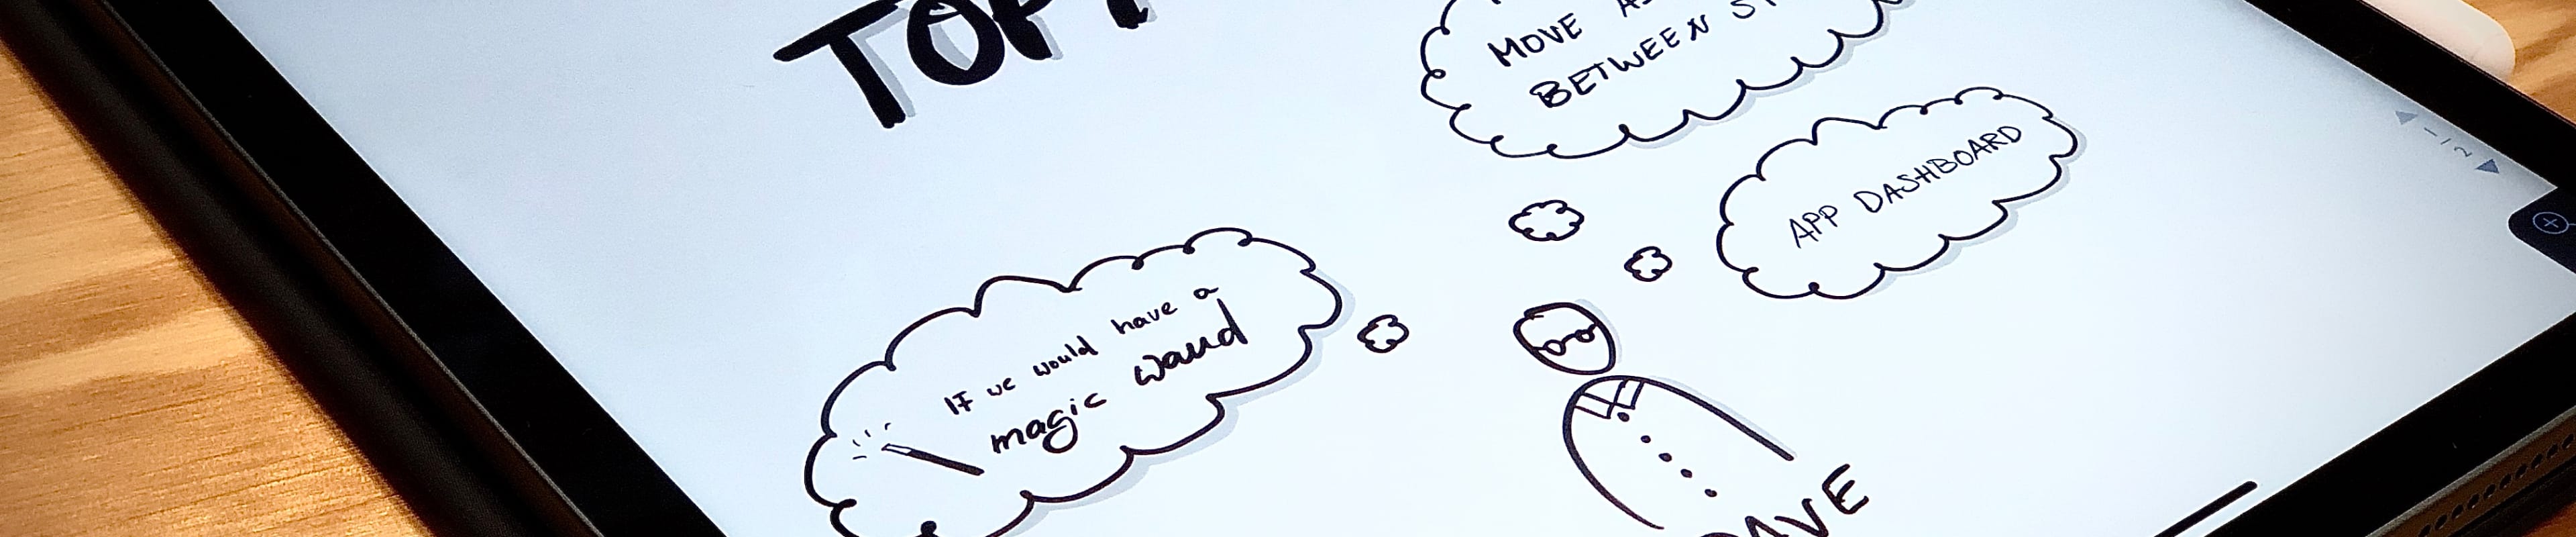 MOVE
BETWEEN
APP DASHBOARD
If we would have a
magic wand
1
2